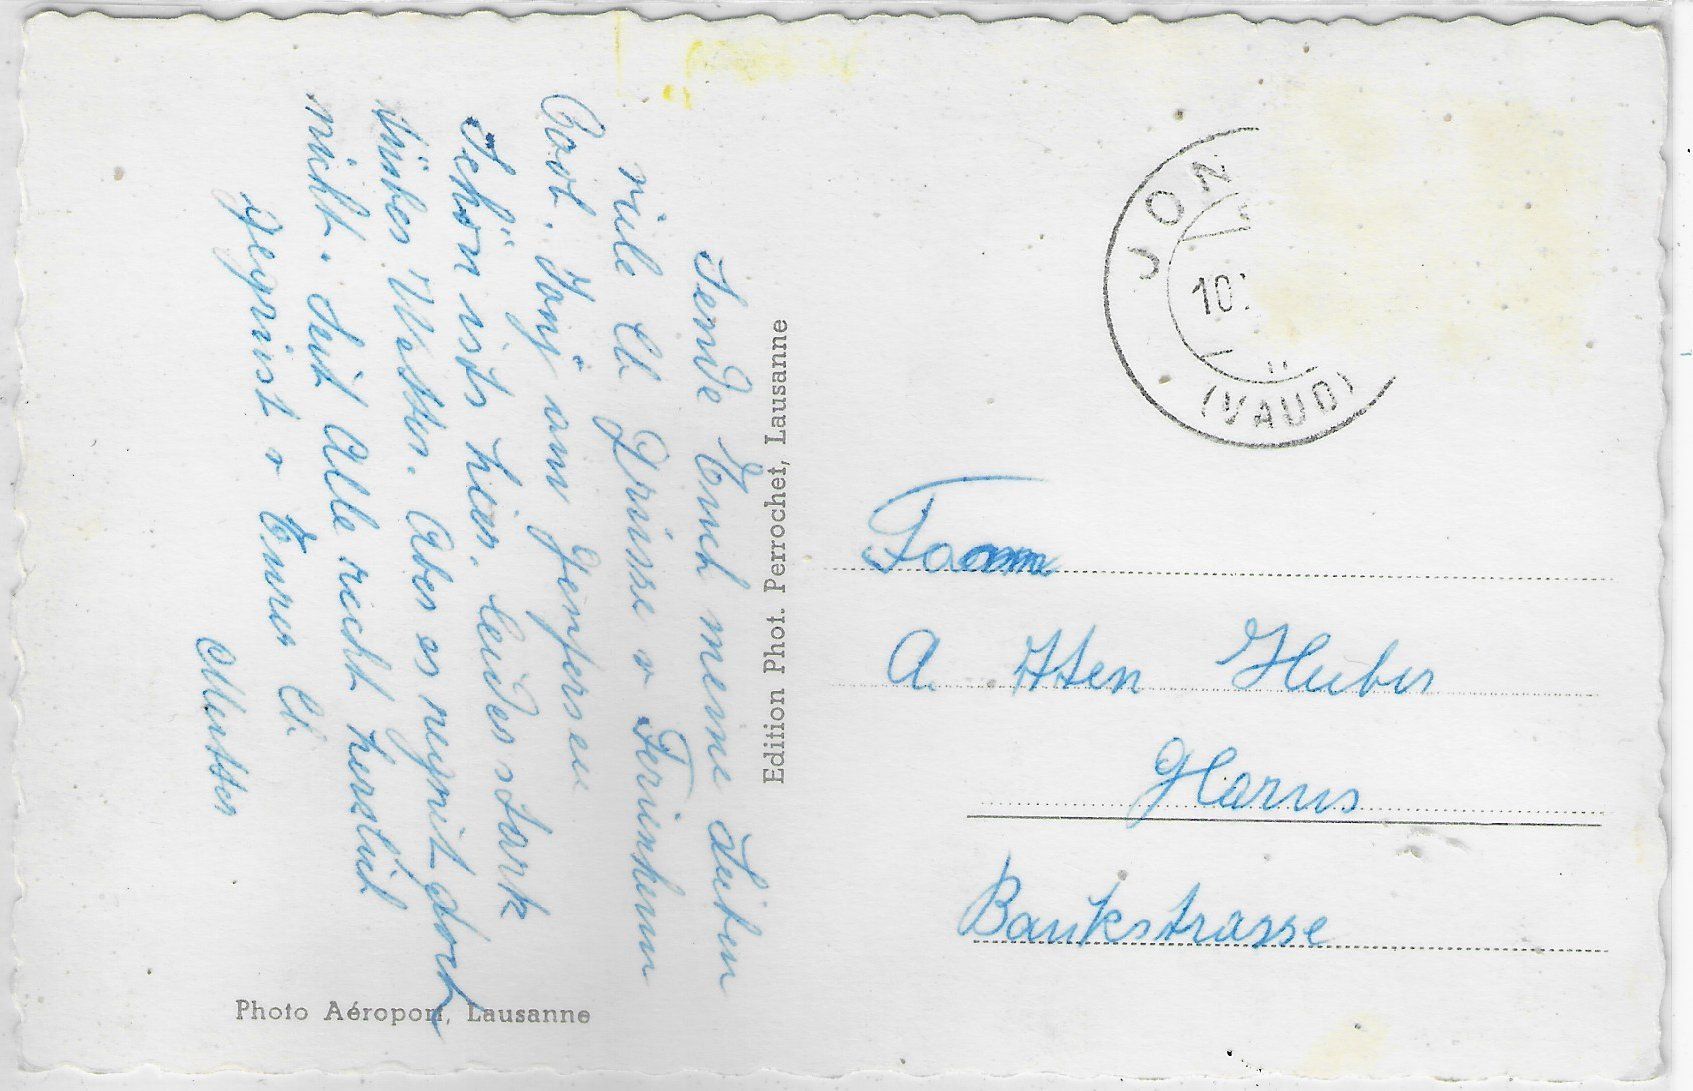 Sende Euch meine Luben
viele lb Grüsse v Ferienheim
Boot. Sonj am Genfersee
Schön ists hier. Leider stark
trübes Wetter. Aber es regnet doch
nicht. Seit Alle recht herzlich
gegrüsst v Eurer lb.
Mutter
Photo Aéroport, Lausanne
Edition Phot. Perrochet, Lausanne
JON
10.
(VAUD)
Fam
A. Hten Huber
Glarus
Bankstrasse